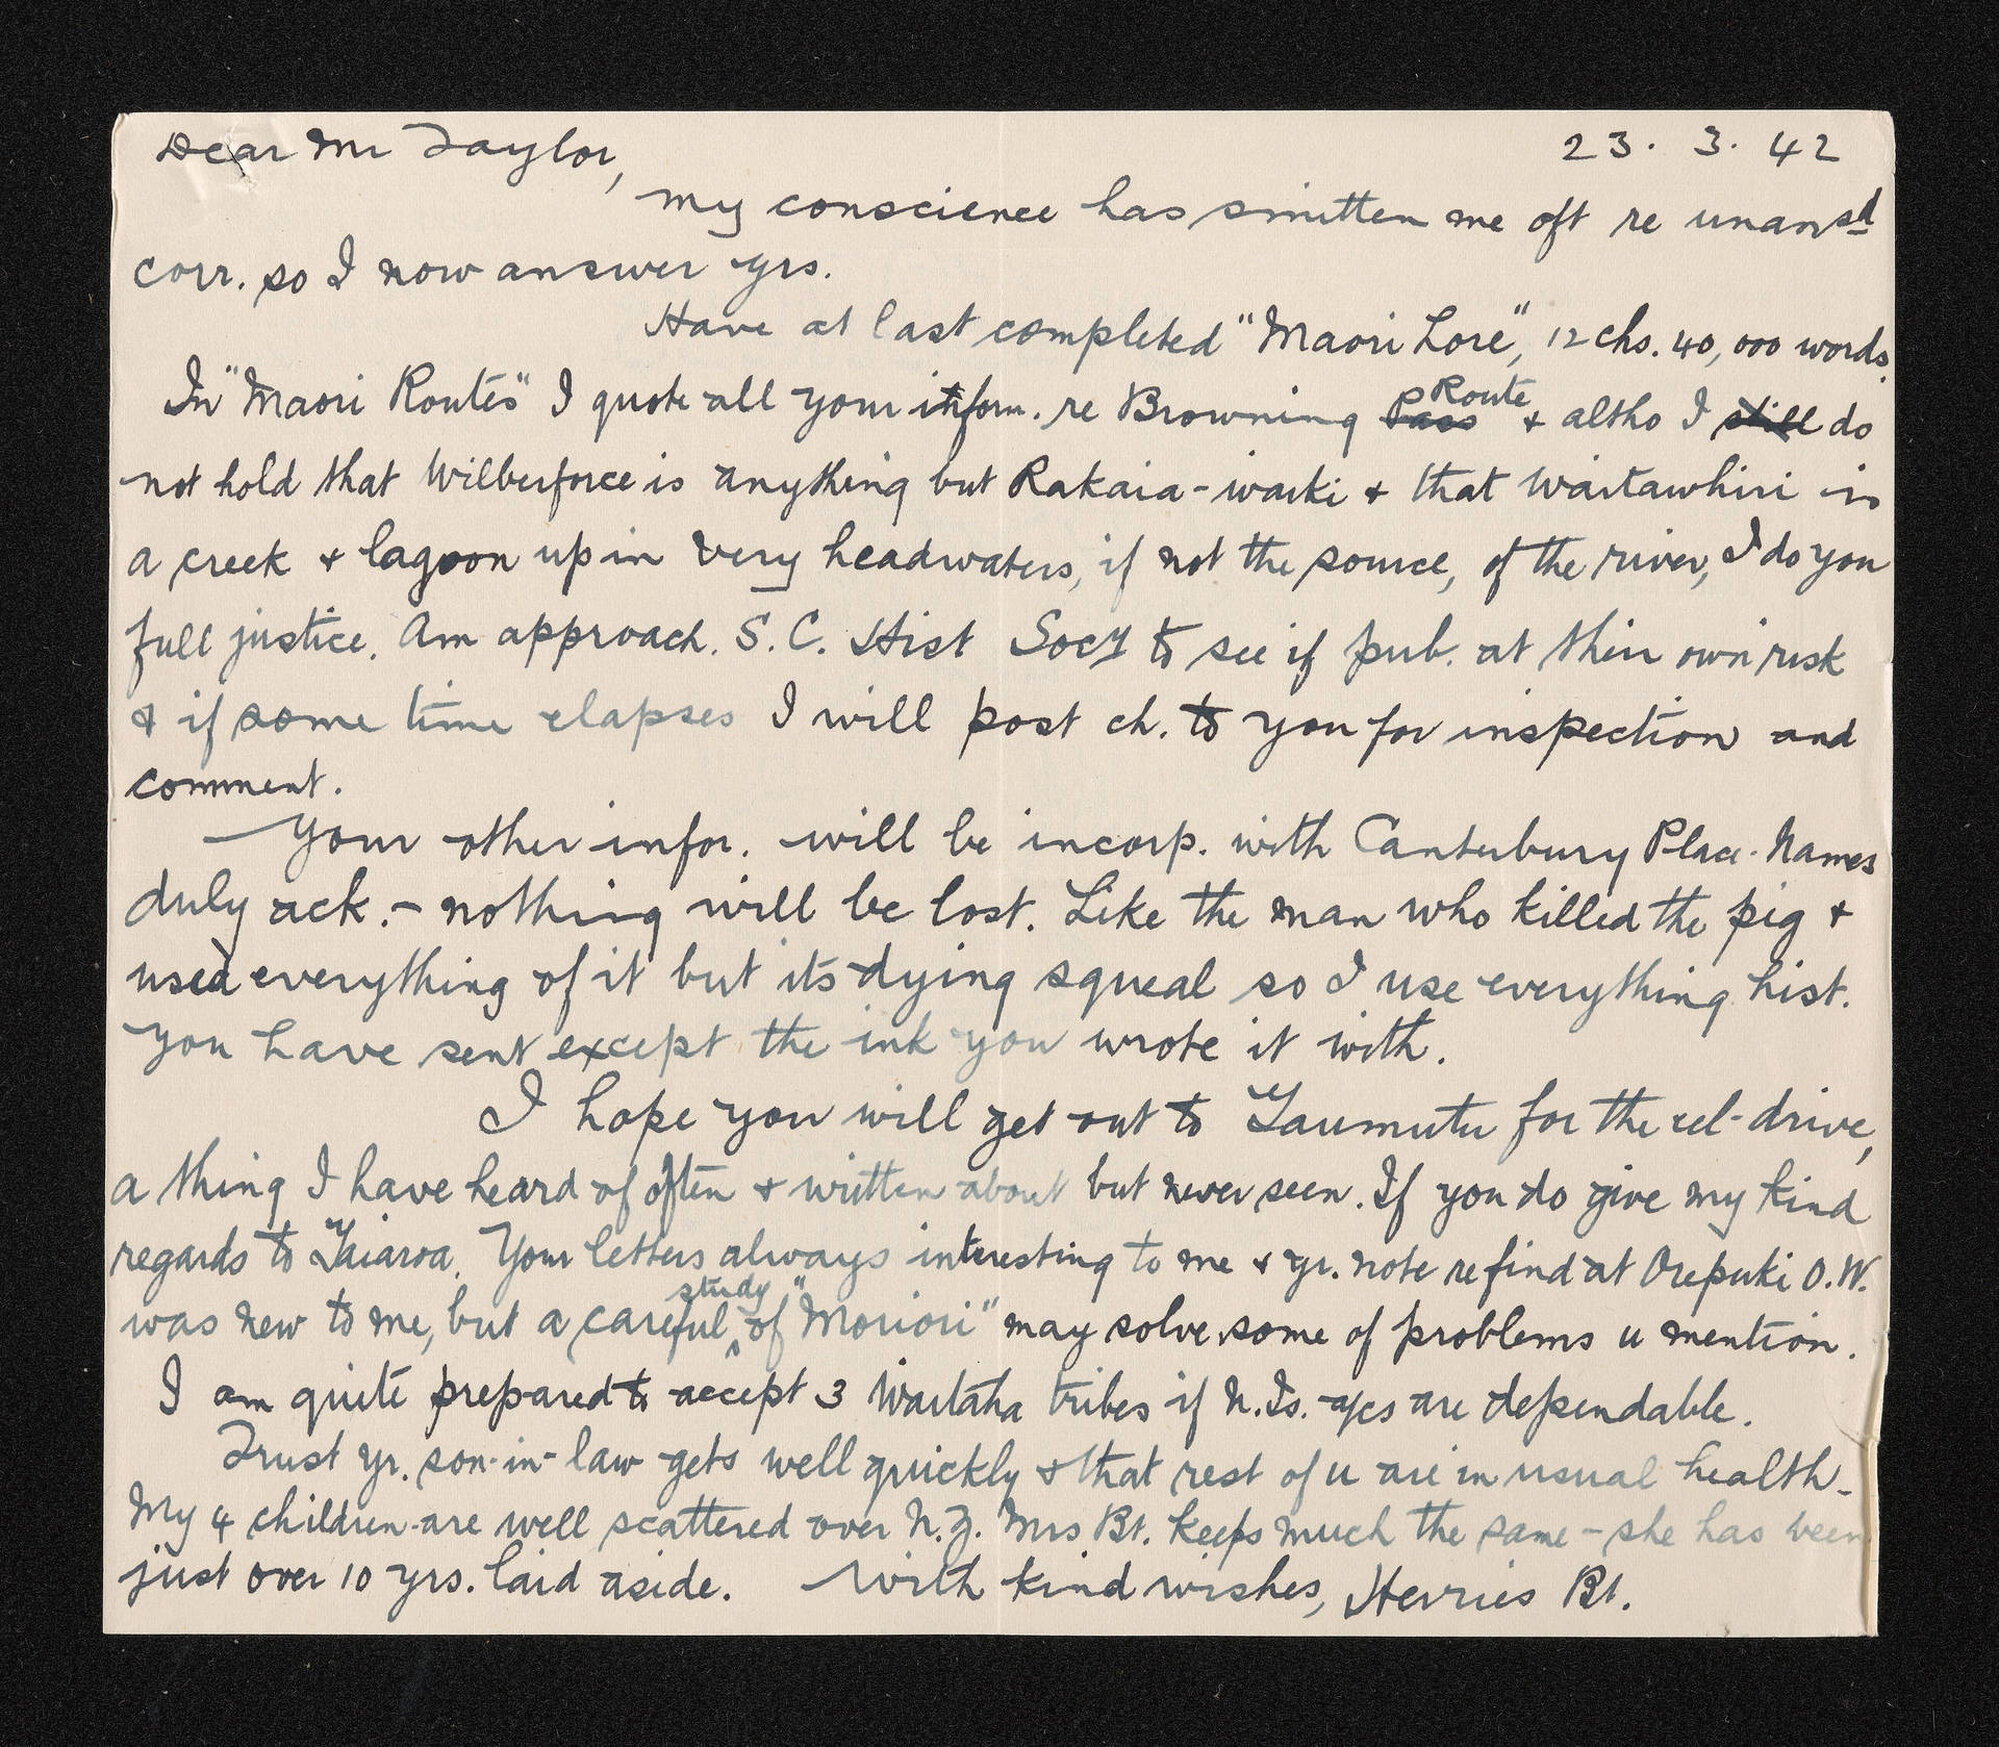 Dear Mr Taylor, 23. 3. 42
My conscience has smitten me oft re unansd
corr. so I now answer yrs.
Have at last completed "Maori Lore", 12 chs. 40,000 words.
In "Maori Routes" I quote all your inform. re Browning Pass Route & altho I still do
not hold that Wilberforce is anything but Rakaia-waiki & that Waitawhiri is
a creek & lagoon up in very headwaters, if not the source, of the river, I do you
full justice. Am approach. S. C. Hist Socy to see if pub. at their own risk
& if some time elapses I will post ch. to you for inspection and
comment.
Your other infor. will be incorp. with Canterbury Place-Names
duly ack. - nothing will be lost. Like the man who killed the pig &
used everything of it but its dying squeal so I use everything hist.
you have sent except the ink you wrote it with.
I hope you will get out to Taumutu for the eel-drive,
a thing I have heard of often & written about but never seen. If you do give my kind
regards to Taiaroa. Your letters always interesting to me & yr. note re find at Orepuki O.W.
was new to me, but a careful study of "Moriori" may solve some of problems u mention.
I am quite prepared to accept 3 Waitaha tribes if N.Is. a/cs are dependable.
Trust yr. son-in-law gets well quickly & that rest of u are in usual health-
My 4 children are well scattered over N.Z. Mrs Bt. keeps much the same - she has been
just over 10 yrs. laid aside. With kind wishes, Herries Bt.